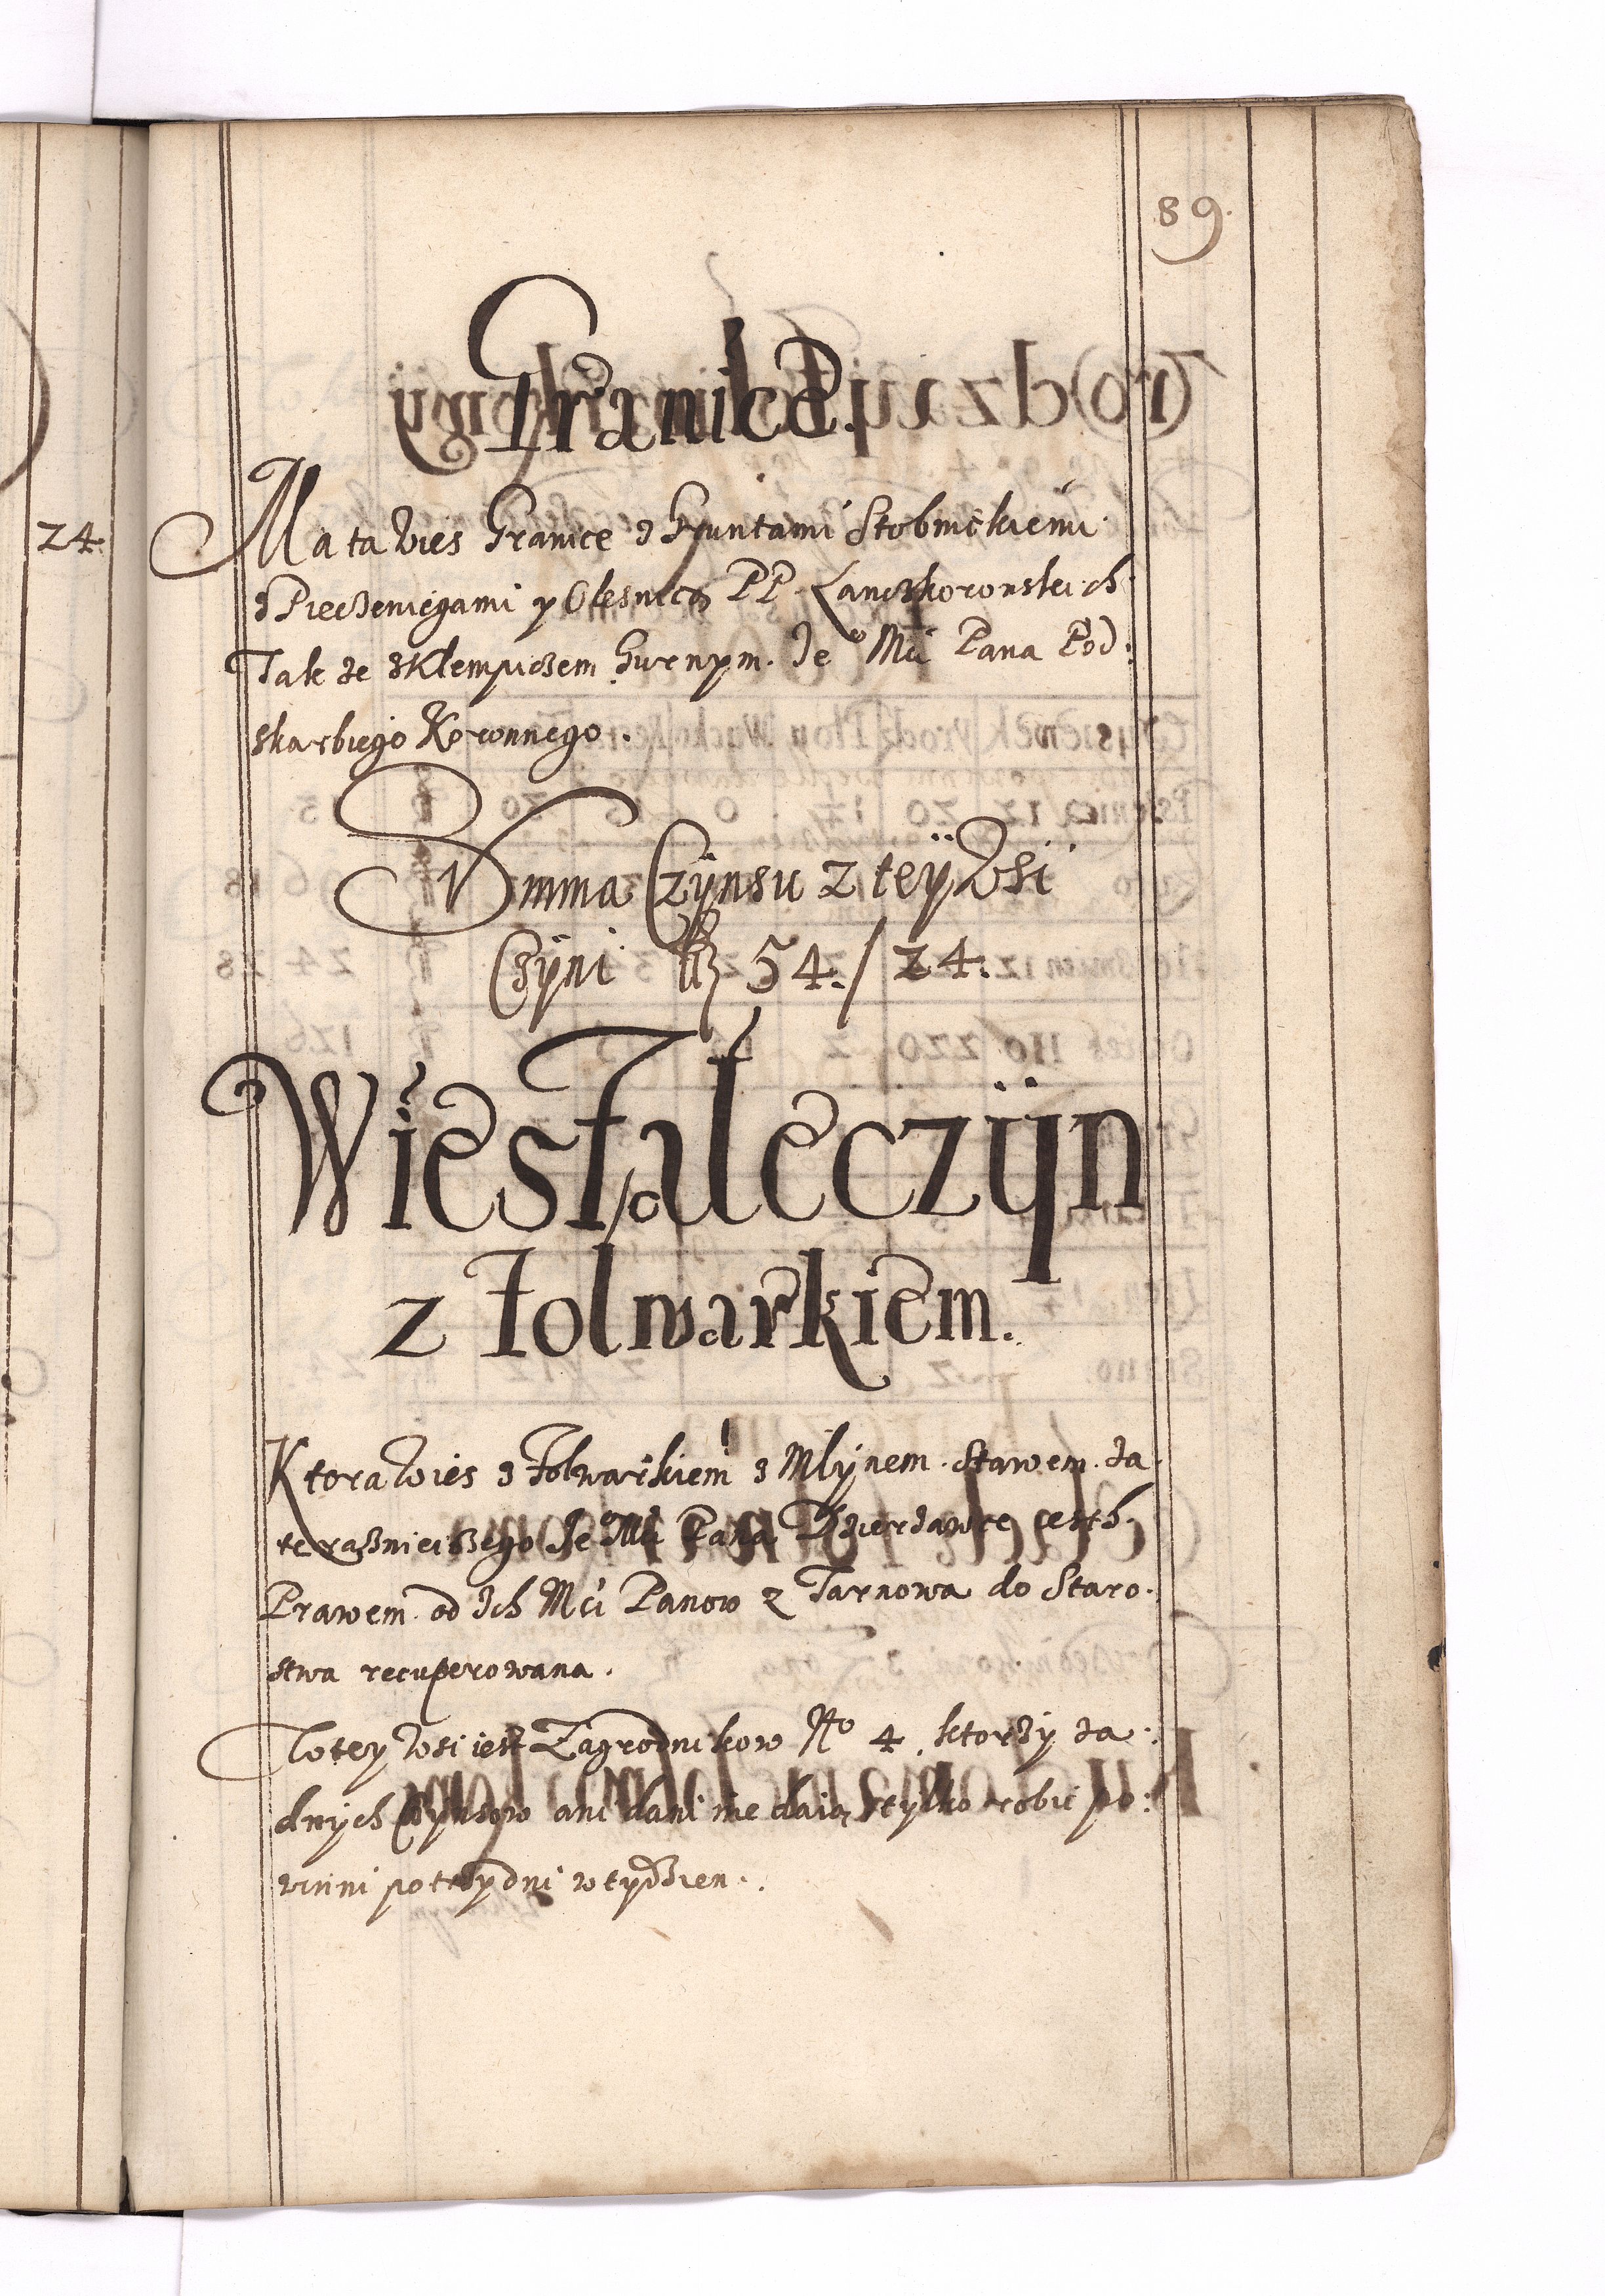 24.
89.
Granice.
Ma ta Wies Granice z Gruntami Stobnickiemi
z Piecżeniegami y Olesnicą PP. Lanczkoronskich
Tak że z Klempiczem Gurnym. Je Mci Pana Pod:
skarbiego Koronnego.
Summa Czÿnsu z teÿ Wsi
Czÿni fl 54./ 24.
Wies Taleczÿn
z Folwarkiem.
Ktora Wies z Folwarkiem z Mlÿnem. Stawem. za
terażnieiszego Je Mci Pana Dzierzawce
Prawem od Ich Mci Panow z Tarnowa do Staro
stwa recuperowana.
W tey Wsi iest Zagrodnikow No 4. ktorzÿ ża:
dnÿch Czÿnszow ani dani nie daią tylko robic po:
winni po trzy dni w tydzien.